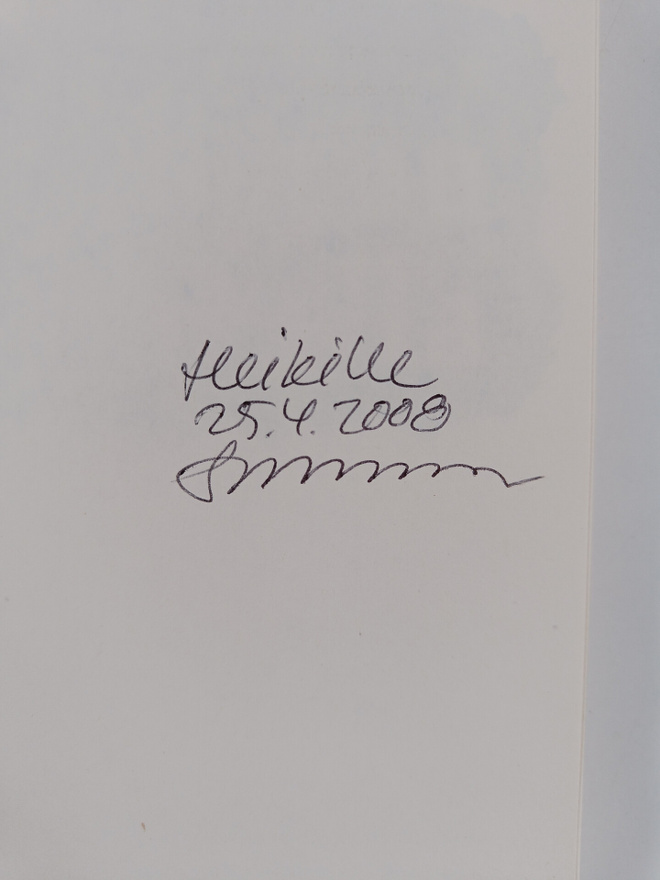 Heikille
25.4.2008